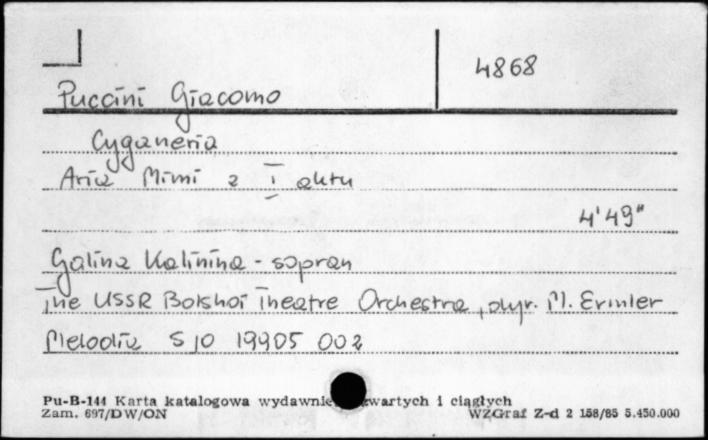 4868
Puccini Giacomo
Cyganeria
Aria Mimi z I aktu
4'49"
Galina Kalinina - sopran
The USSR Bolshoi Theatre Orchestra, dyr. M. Ermler
Melodia S 10 19905 002
Pu-B-144 Karta katalogowa wydawnic zwartych i ciągłych
Zam. 697/DW/ON WZGraf Z-d 2 158/85 5.450.000